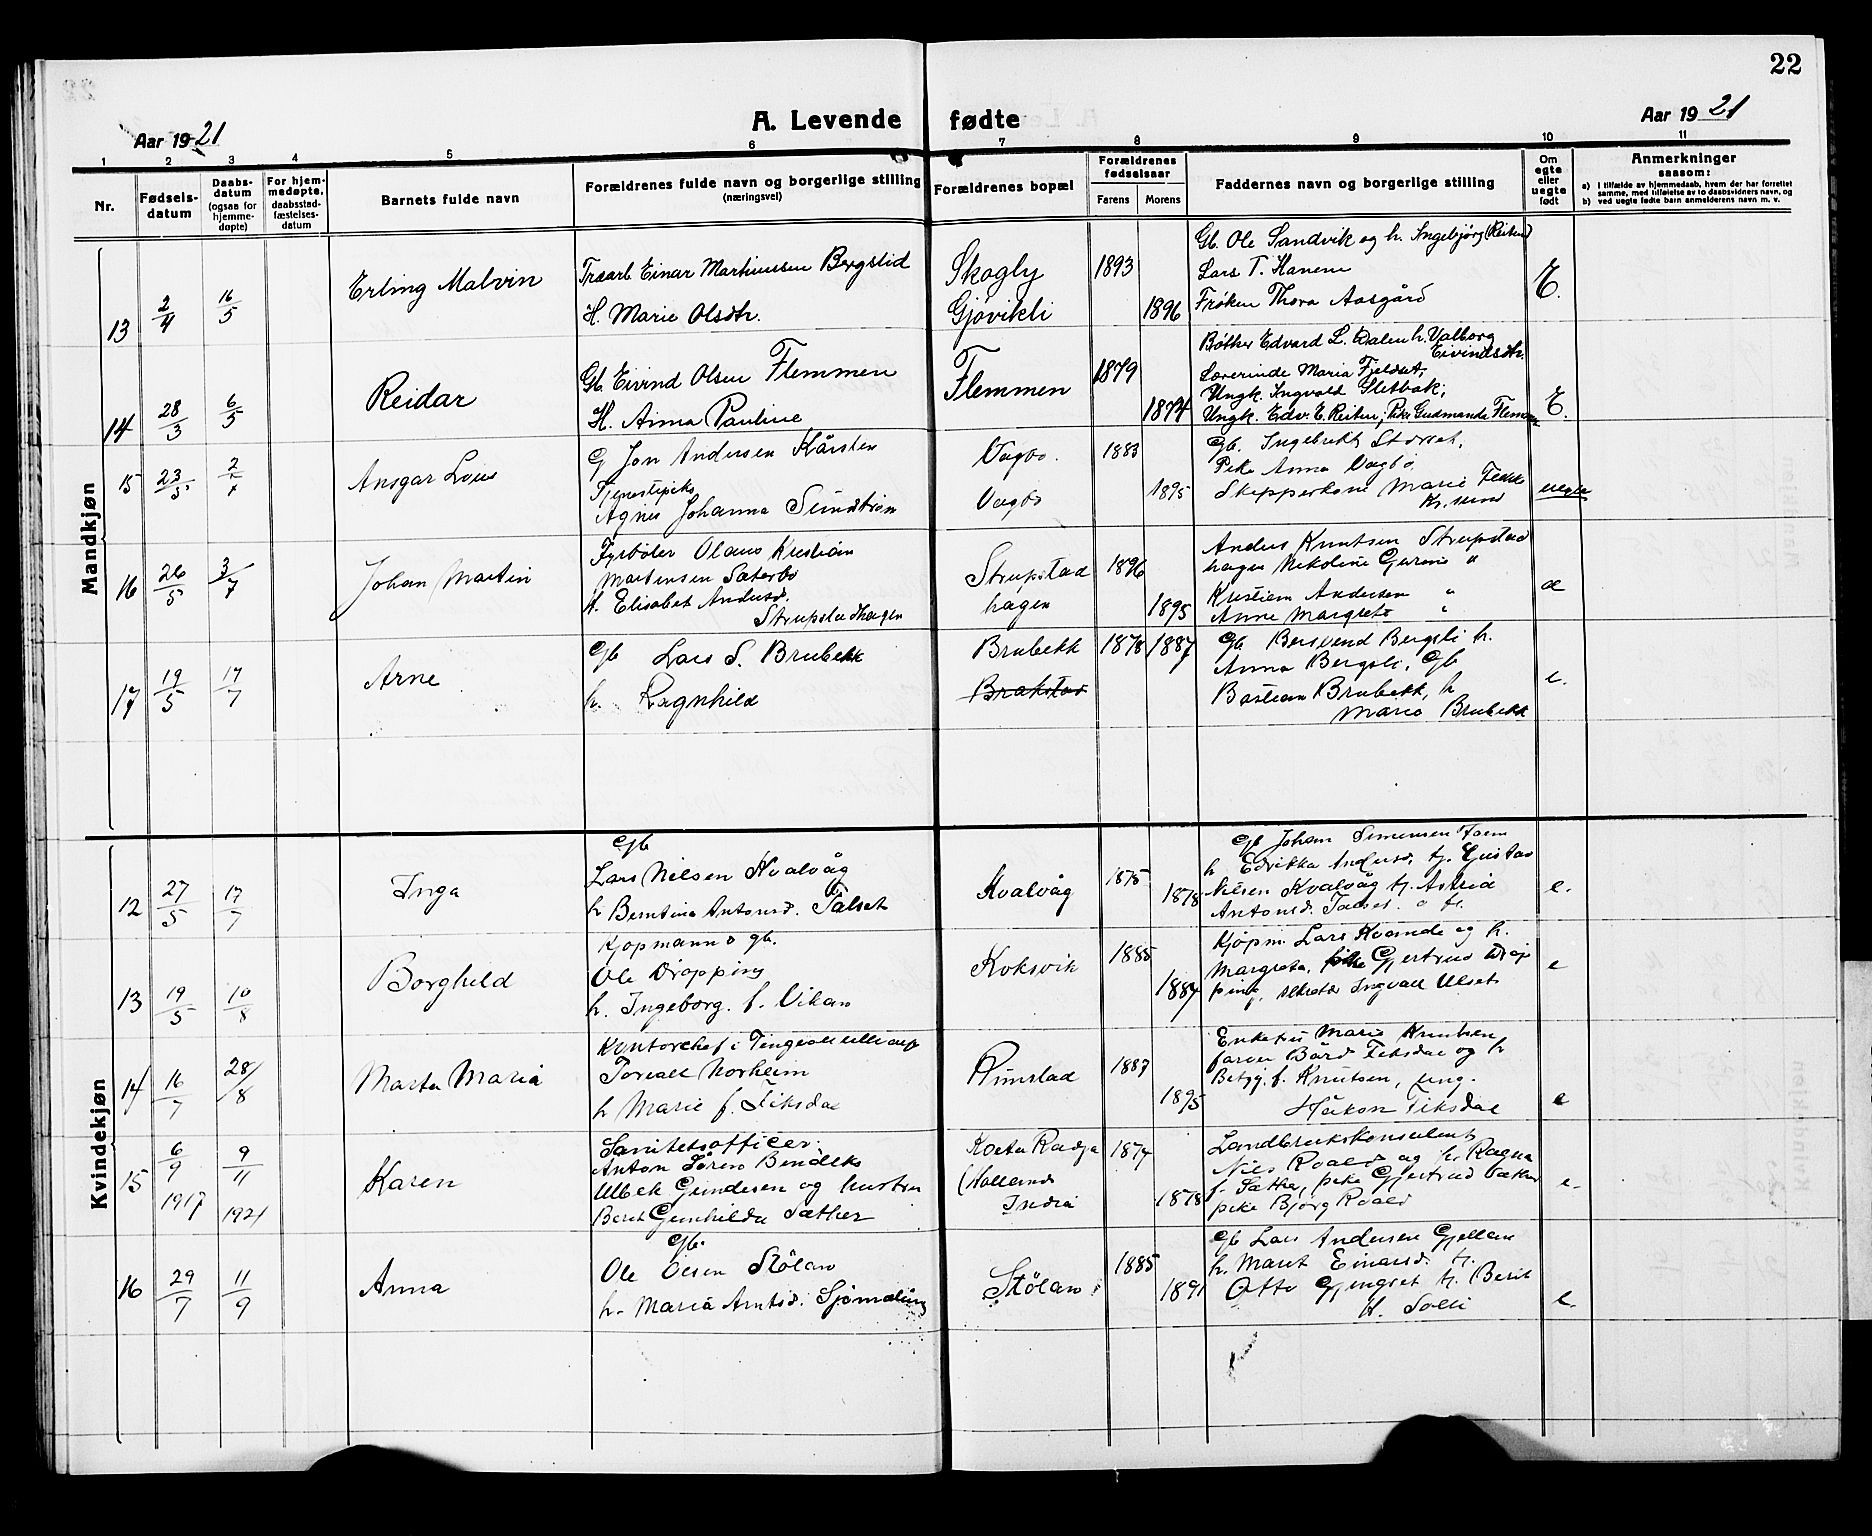 22
Aar 1921
A. Levende fødte
Aar 1921
1 2 3 4 5 6 7 8 9 10 11
Nr.
Fødsels-
datum
Daabs-
datum
(ogsaa for
hjemme-
døpte)
For hjem-
medøpte,
daabsstad-
fæstelses-
datum
Barnets fulde navn
Forældrenes fulde navn og borgerlige stilling
(næringsvei)
Forældrenes bopæl
Forældrenes
fødselsaar
Farens Morens
Faddernes navn og borgerlige stilling
Om
egte
eller
uegte
født
Anmerkninger
saasom:
a) I tilfælde av hjemmedaab, hvem der har forrettet
samme, med tilføielse av to daabsvidners navn, og
b) ved uegte fødte barn anmelderens navn m. v.
Mandkjøn
13
2/4
16/5
Erling Malvin
Traarb. Einar Martinusen Bergslid
H. Marie Olsdtr.
Skogly
Gjøvikli
1893
1896
Gb. Ole Sandvik og h. Ingebjørg (Reiten)
Lars T. Hanem
Frøken Thora Aasgård
E.
14
28/3
6/5
Reidar
Gb. Eivind Olsen Flemmen
H. Anna Pauline
Flemmen
1879
1874
Bøtker Edvard L. Dalen h. Valborg
Eivindsdtr.
Lærerinde Maria Fjeldset,
Ungk. Ingvald Sletbak;
Ungk. Edv. E. Reiten; Pike Gudmanda Flemmen
E.
15
23/5
Ansgar Lous
G Jon Andersen Kårsten
Tjenestepike
Agnes Johanna Sundstrøm
Vågbø.
Vågbø
1883
1895
Gb. Ingebrikt Storset,
Pike Anna Vågbø,
Skipperkone Marie
Kr. sund
uegte
16
26/5
3/7
Johan Martin
Fyrbøter Olaus Kristian
Martinsen Sæterbø
h. Elisabet Andersd.
Strupstadhagen
Strupstad
hagen
1896
1895
Anders Knutsen Strupstad
hagen Nikoline "
Kristian Andersen "
Anne Margrete "
æ
17
19/5
17/7
Arne
Gb Lars S. Brubekk
h. Ragnhild
Brubekk
Brakstad
1878 1887
Gb Bersvend Bergsli h.
Anna Bergsli, Gb
Bastian Brubekk, h
Marie Brubekk
e.
Kvindekjøn
12
27/5
17/7
Inga
Gb
Lars Nilsen Kvalvåg
h Berntina Antonsd. Talset
Kvalvåg
1875
1878
Gb Johan Simensen
h Edrikka Andersd, tj. Gustav
Nilsen Kvalvåg tj. Astrid
Antonsd. Talset.
e.
13
19/5
10/8
Borghild
Kjøpmann o gb.
Ole Dropping
h. Ingeborg f. Vikan
Koksvik
1885
1887
Kjøpm. Lars Kvande og h.
Margreta, pike Gjertrud Drop
ping, Ingvall Ulset
e
14
16/7
28/8
Marta Maria
Kontorchef i Tingvoll
Torvall Norheim
h Marie f. Fiksdal
Rimstad
1887
1895
Enkefru Marie Knutsen
farver Bård Fiksdal og h
f. Knutsen, ung.
Håkon Fiksdal
e
15
6/9
1917
9/11
1921
Karen
Sanitetsofficer
Anton Søren Bendeks
Ulbek Gundesen og hustru
Beret Gunhilda Sæther
Koeta Radja
(Hollands
India
1874
1878
Landbrukskonsulent
Nils Roald og h. Ragna
f. Sæther, pike Gjertrud Sæther
pike Bjørg Roald
e.
16
29/7
11/9
Anna
Gb.
Ole Olsen Stølan
h. Maria Arntsd. Sjømæling
Stølan
1885
1891
Gb Lars Andersen Gjellan
h. Marit Einarsd. tj.
Otto Gjengset tj. Berit
H. Solli
e.